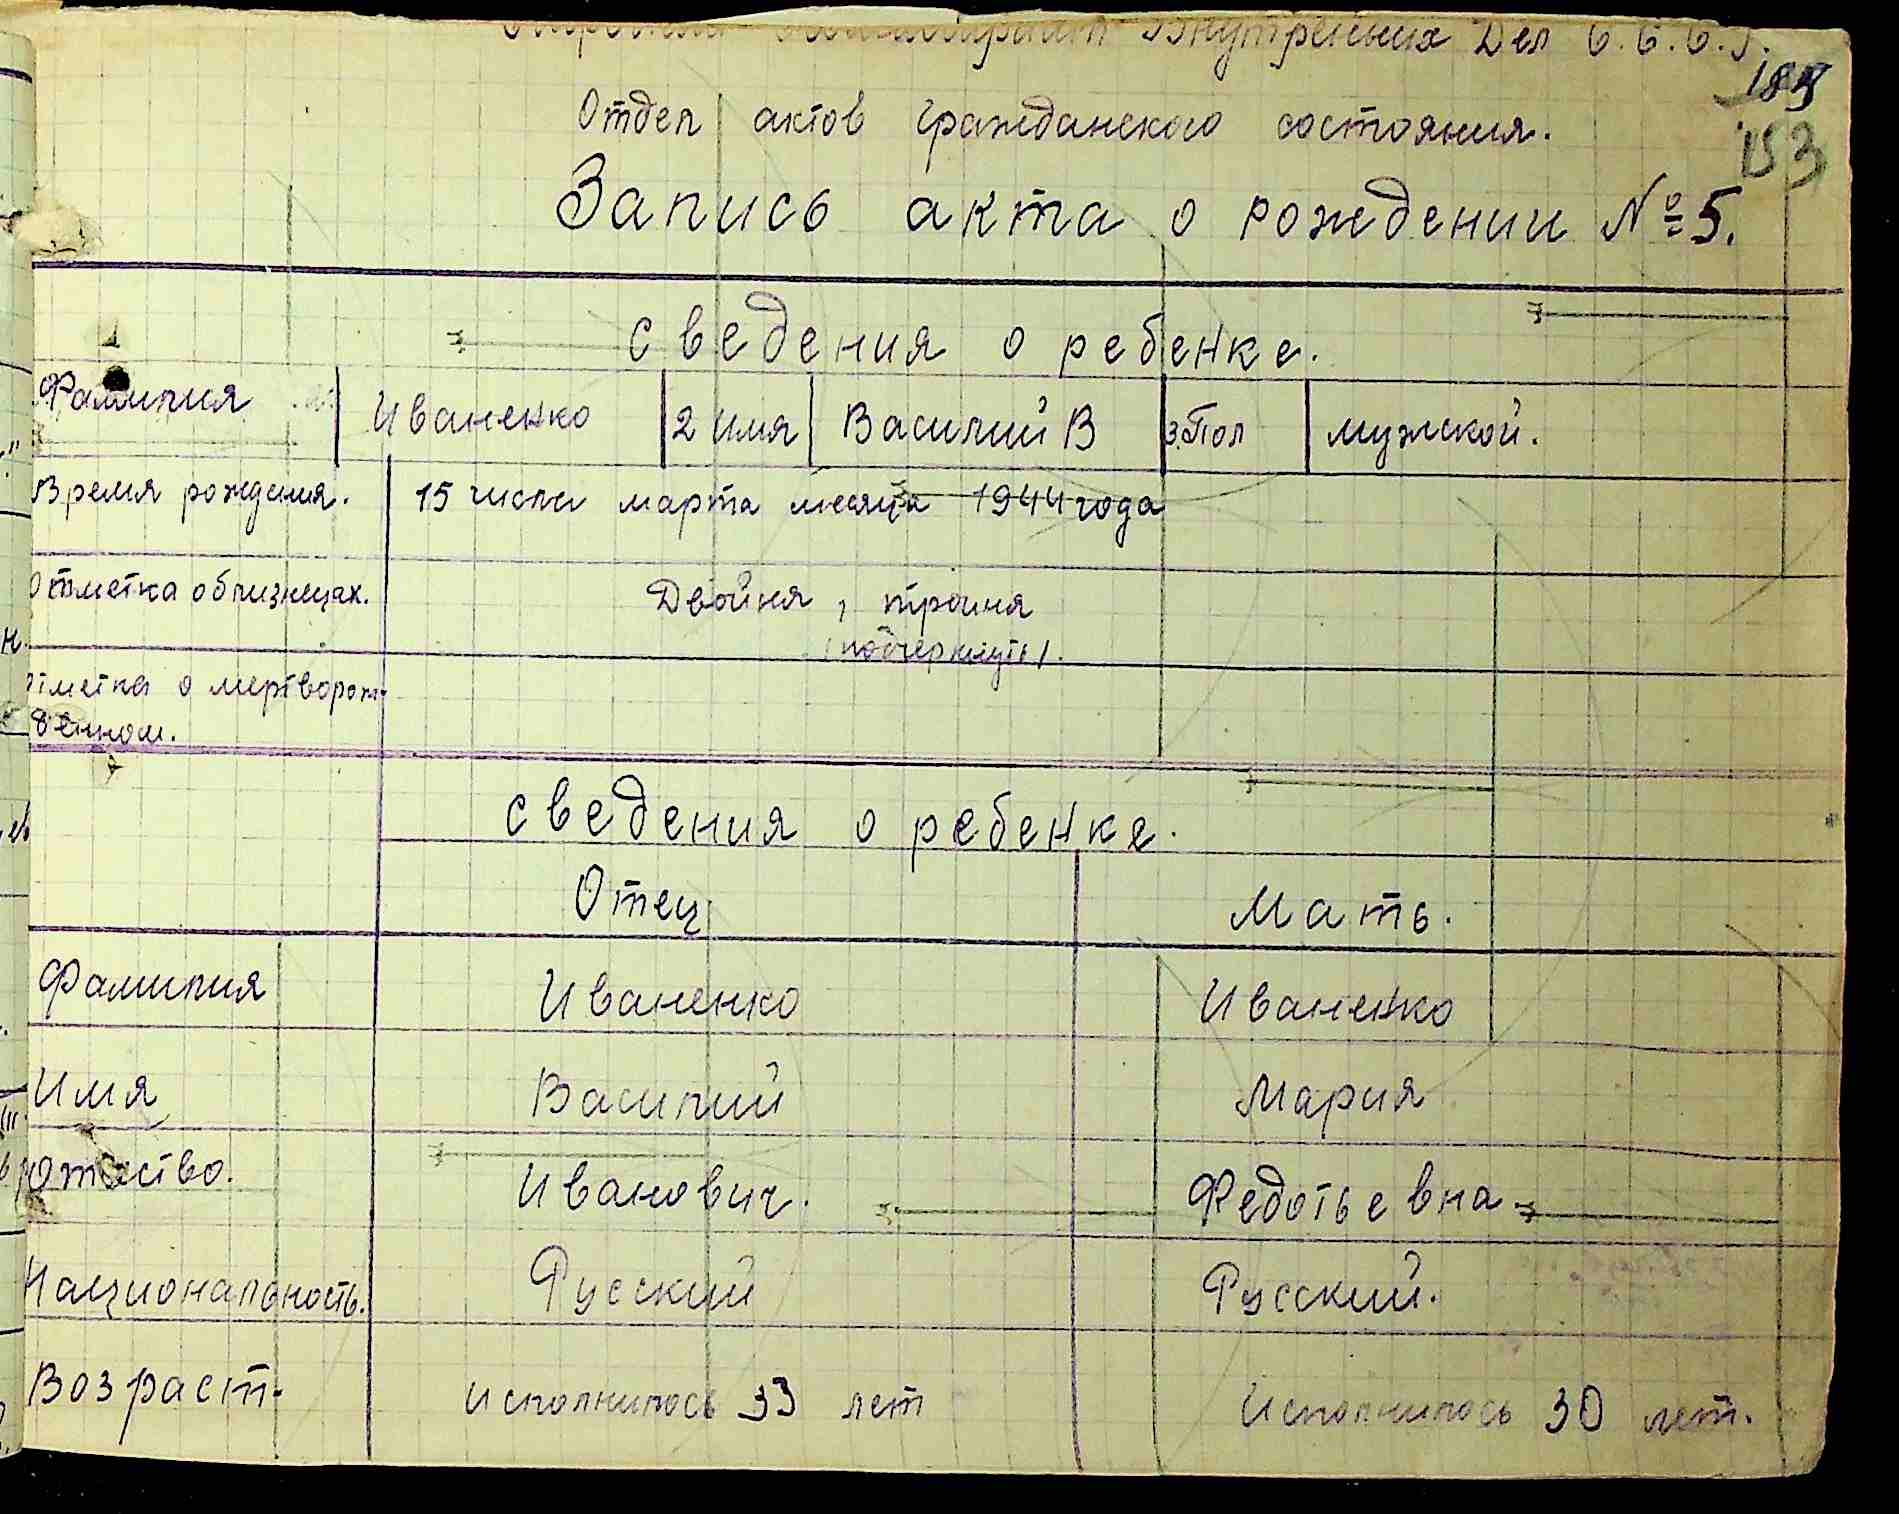 Внутренних Дел С.С.С.Р.
185
153
Отдел актов гражданского состояния.
Запись акта о рождении №5.
сведения о ребенке.
Фамилия Иваненко 2 Имя Василий В 3.Пол мужской.
Время рождения. 15 числа марта месяца 1944 года
Отметка о близнецах. Двойня, тройня
(подчеркнуть).
отметка о мертворож-
денном.
сведения о ребенке.
Отец Мать.
Фамилия Иваненко Иваненко
Имя Василий Мария
Отчество. Иванович. Федотьевна
Национальность. Русский Русский.
Возраст. Исполнилось 33 лет Исполнилось 30 лет.